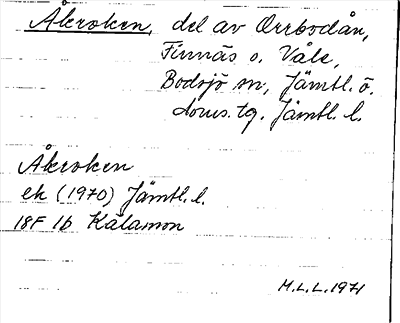 Åkroken, del av Örrbodån,
Finnäs o. Våle,
Bodsjö sn, Jämtl. ö.
doms. tg. Jämtl. l.
Åkroken
ek (1970) Jämtl. l.
18F 1b Kälamon
M.L.L. 1971